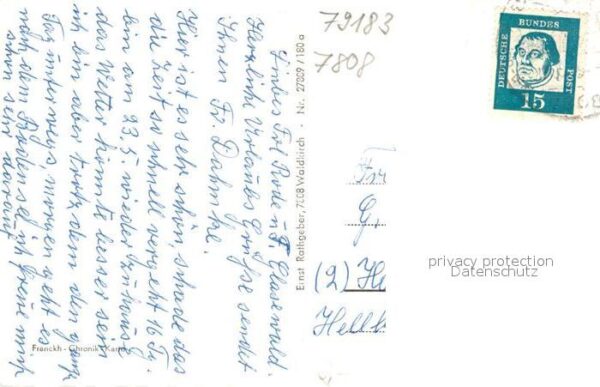 79183
7808
DEUTSCHE
BUNDES
POST
15
Liebes Frl Rode u F Clasewald.
Herzliche Urlaubs Grüße sendet
Ihnen Fr. Dahmke.
Hier ist es sehr schön, schade das
die Zeit so schnell vergeht 16 Tg.
bin am 23.5. wieder zuhaus
das Wetter könnte besser sein
ich bin aber trotz dem den ganz
Tag unterwegs morgen geht es
nach dem Bodensee ich freue mich
schon sehr darauf
Ernst Rathgeber, 7808 Waldkirch · Nr. 27009/180a
Franckh-Chronik-Karte
Fr
G.
(2) H
Hellb
privacy protection
Datenschutz